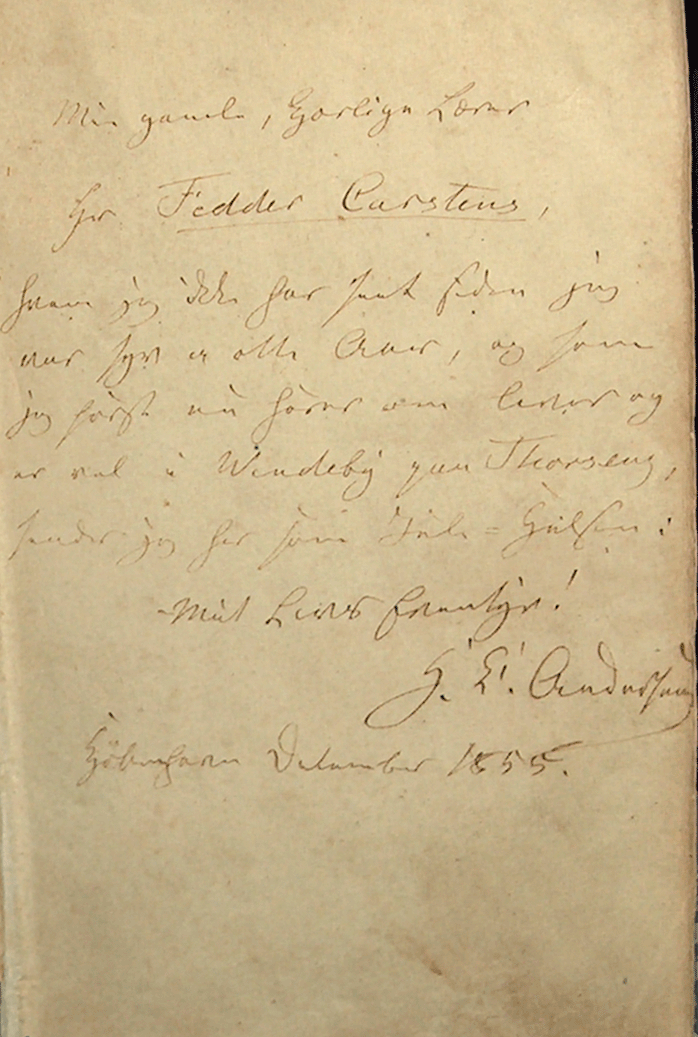 Min gamle, hjærlige Lærer
Hr Fedder Carstens,
hvem jeg ikke har seet siden jeg
var syv a otte Aar, og som
jeg først nu hører om lever og
er vel i Windeby paa Thorseng,
sender jeg her som Jule-Hilsen:
Mit Livs Eventyr!
H. C. Andersen
Kjöbenhavn December 1855.